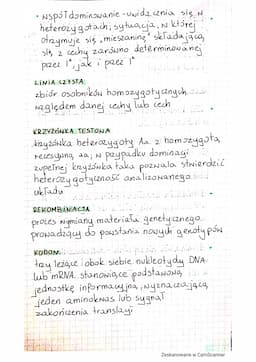 • współdominowanie - uwidacznia się w
heterozygotach; sytuacja, w której
otrzymuje się „mieszaninę" składającą
się z cechy zarówno determinowanej
przez Iᴬ, jak i przez Iᴮ
LINIA CZYSTA
zbiór osobników homozygotycznych
względem danej cechy lub cech
KRZYŻÓWKA TESTOWA
krzyżówka heterozygoty Aa z homozygotą
recesywną aa; w przypadku dominacji
zupełnej krzyżówka taka pozwala stwierdzić
heterozygotyczność analizowanego
układu
REKOMBINACJA
proces wymiany materiału genetycznego
prowadzący do powstania nowych genotypów
KODON
trzy leżące obok siebie nukleotydy DNA
lub mRNA stanowiące podstawową
jednostkę informacyjną, wyznaczającą
jeden aminokwas lub sygnał
zakończenia translacji
Zeskanowane w CamScanner